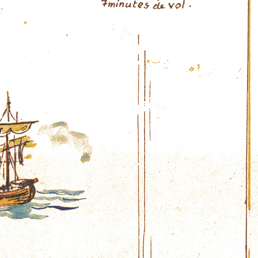 7minutes de vol.